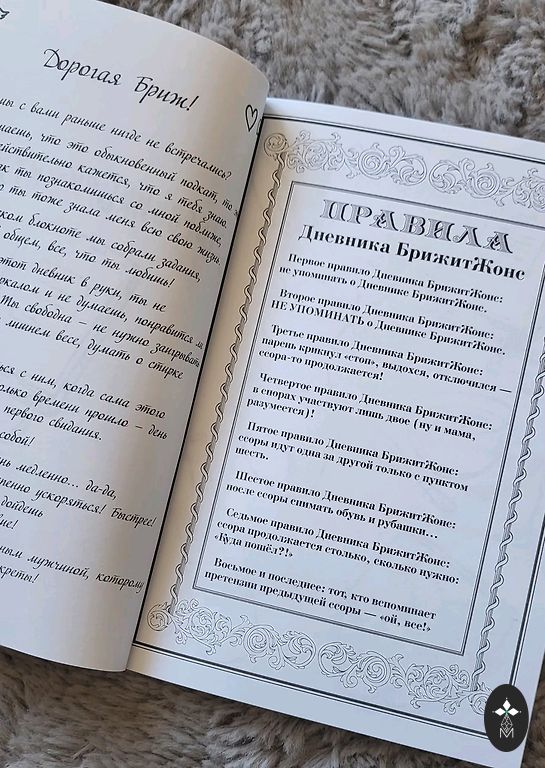 Дорогая Бриж!
мы с вами раньше нигде не встречались?
маешь, что это обыкновенный подкат, то
йствительно кажется, что я тебя знаю.
ак ты познакомишься со мной поближе,
о ты тоже знала меня всю свою жизнь.
ком блокноте мы собрали задания,
общем, все, что ты любишь!
этот дневник в руки, ты не
ркалом и не думаешь, понравится
Ты свободна – не нужно заигрывать
лишнем весе, думать о стирке
ься с ним, когда сама этого
олько времени прошло – день
первого свидания.
собой!
нь медленно... да-да,
пенно ускоряться! Быстрее!
дойдешь
ие!
ным мужчиной, которому
креты!
ПРАВИЛА
Дневника БрижитЖонс
Первое правило Дневника БрижитЖонс:
не упоминать о Дневнике БрижитЖонс.
Второе правило Дневника БрижитЖонс:
НЕ УПОМИНАТЬ о Дневнике БрижитЖонс.
Третье правило Дневника БрижитЖонс:
парень крикнул «стоп», выдохся, отключился —
ссора-то продолжается!
Четвертое правило Дневника БрижитЖонс:
в спорах участвуют лишь двое (ну и мама,
разумеется)!
Пятое правило Дневника БрижитЖонс:
ссоры идут одна за другой только с пунктом
шесть.
Шестое правило Дневника БрижитЖонс:
после ссоры снимать обувь и рубашки...
Седьмое правило Дневника БрижитЖонс:
ссора продолжается столько, сколько нужно:
«Куда пошёл?!»
Восьмое и последнее: тот, кто вспоминает
претензии предыдущей ссоры — «ой, все!»